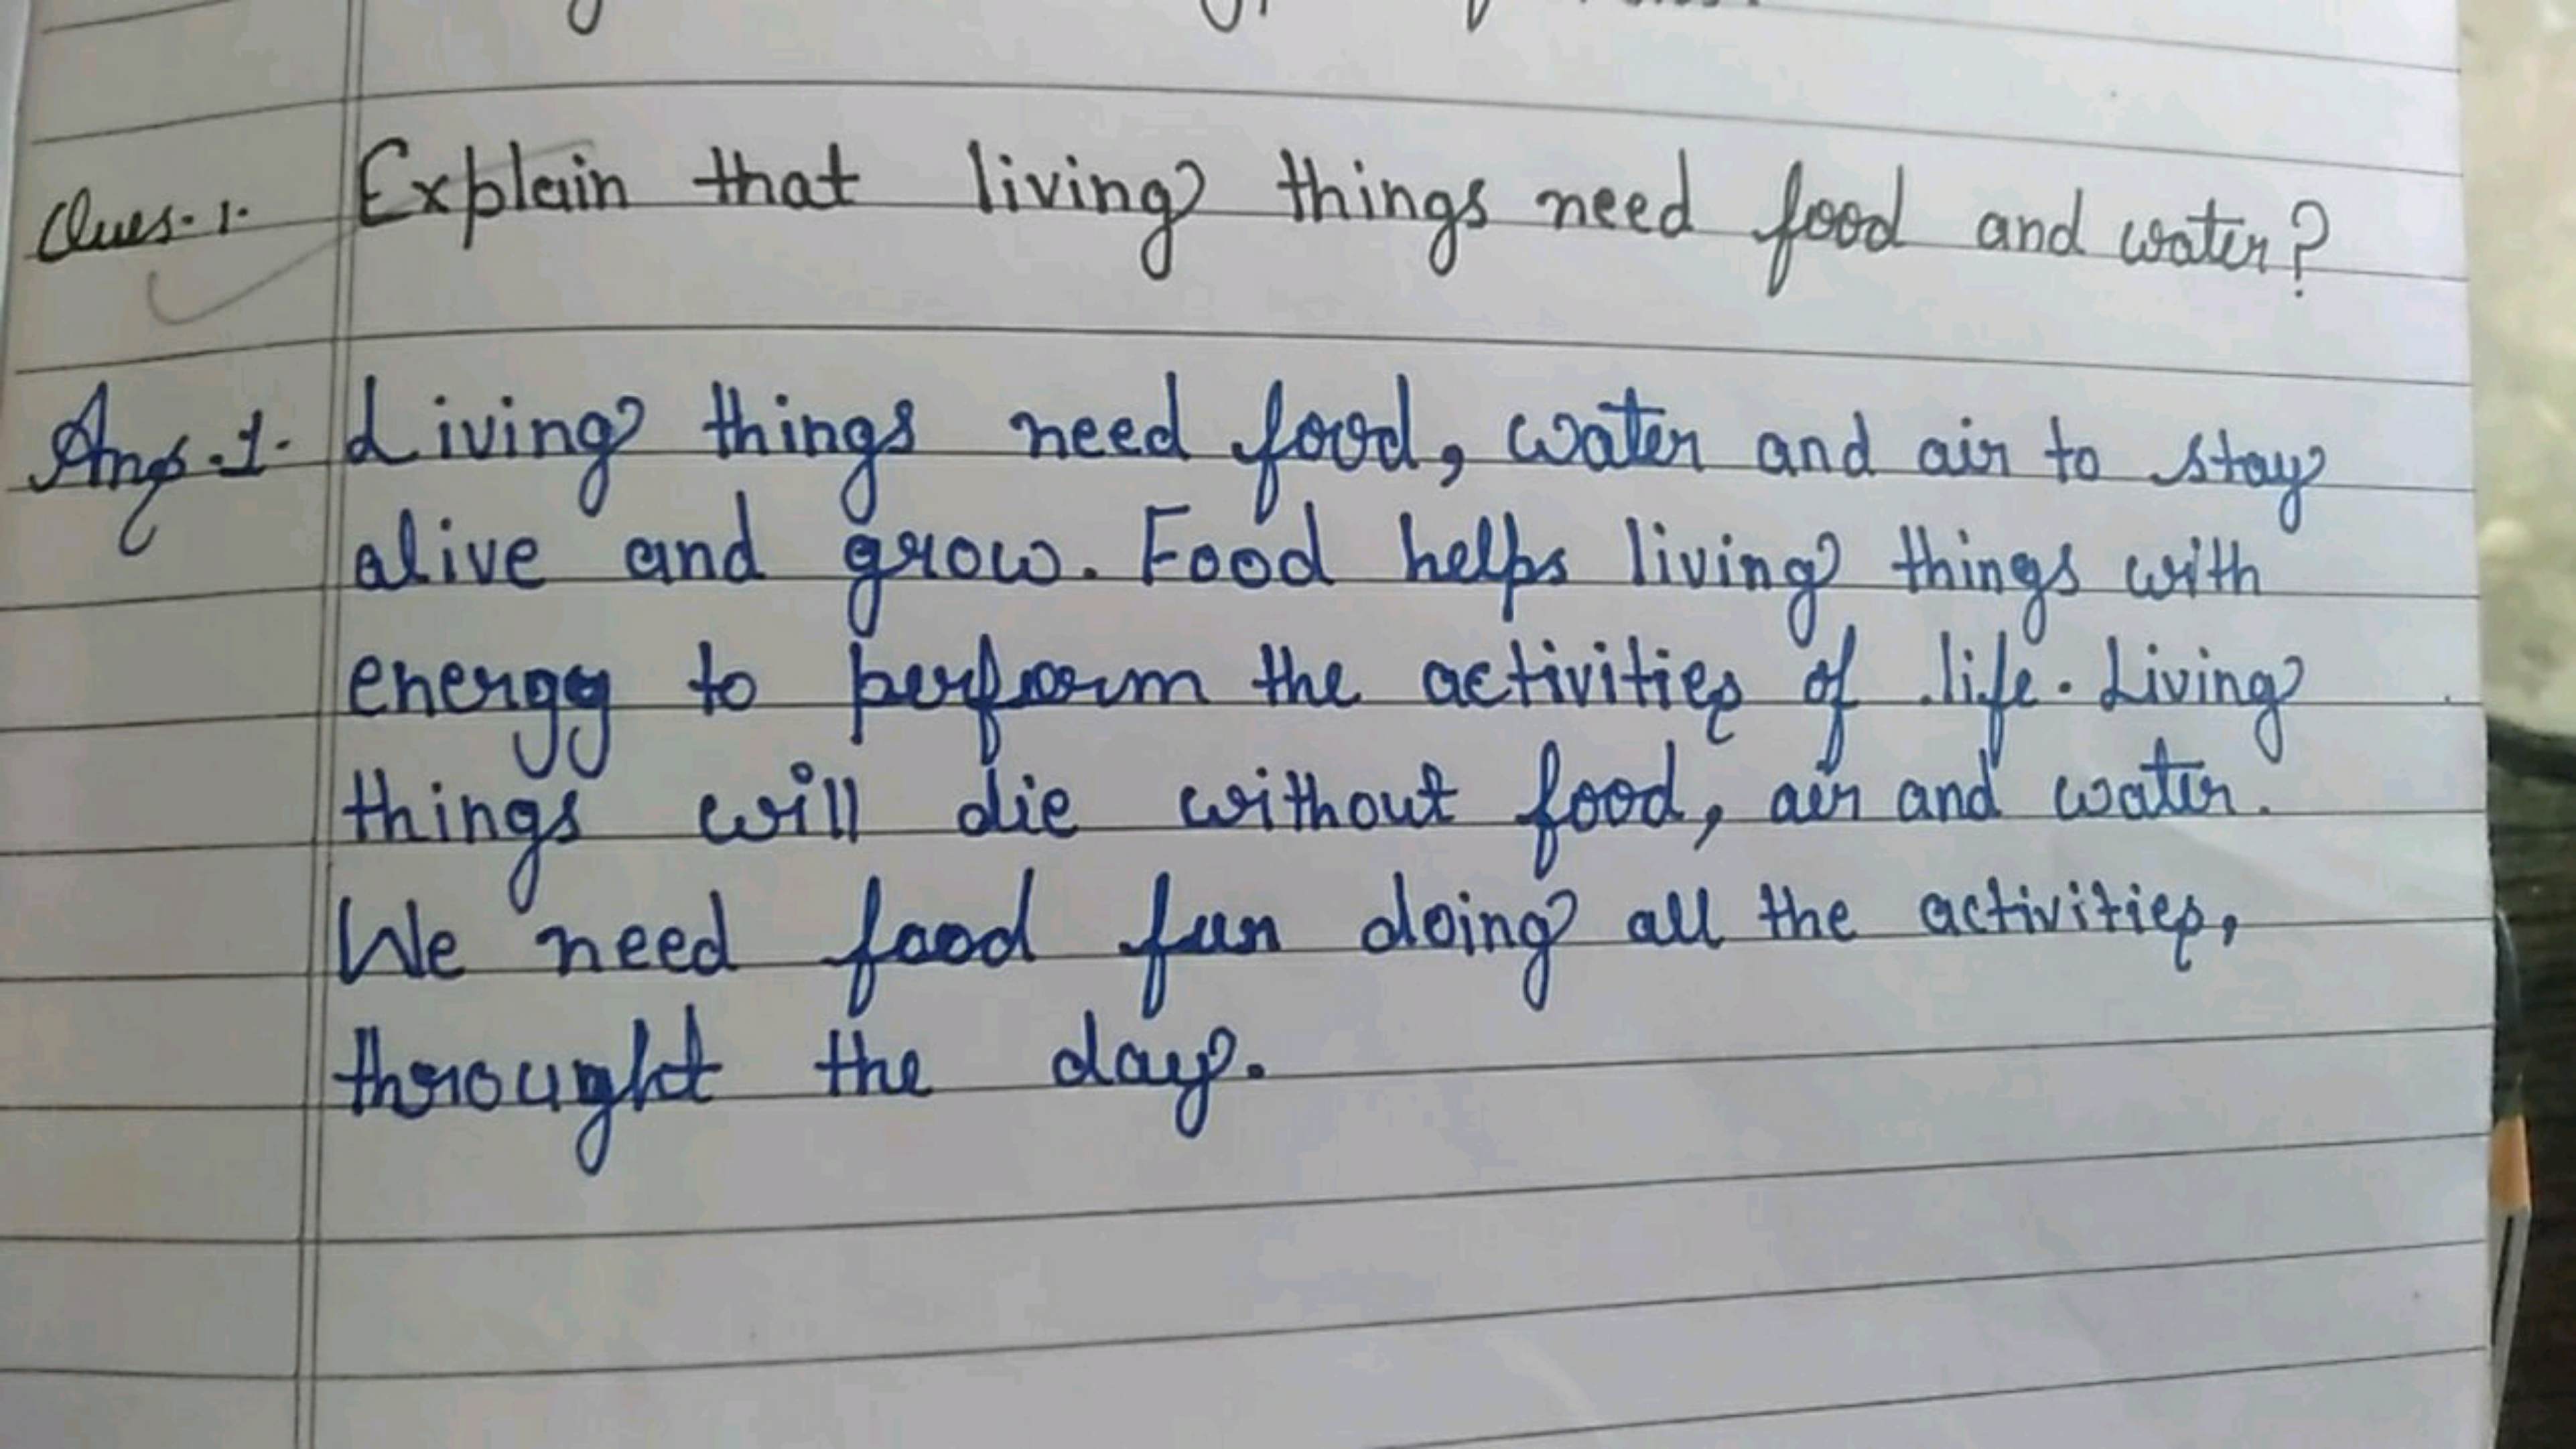 Ques. 1. Explain that living things need food and water?
Ans. 1. Living things need food, water and air to stay
alive and grow. Food helps living things with
energy to perform the activities of life. Living
things will die without food, air and water.
We need food fur doing all the activities,
throught the day.